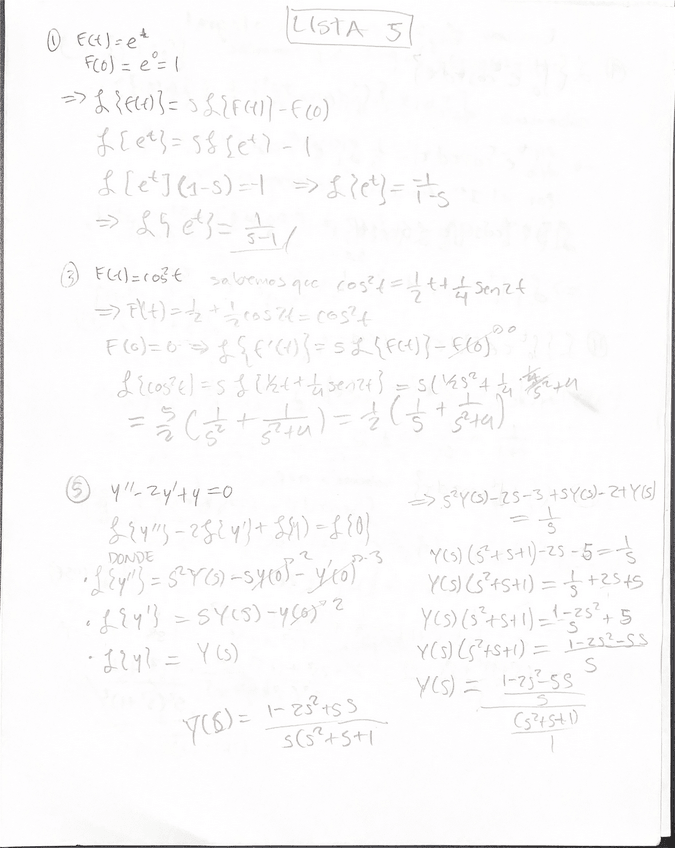 LISTA 5
① F(t)=e^t
F(0) = e^0 = 1
=> ℒ{f'(t)} = sℒ{F(t)} - F(0)
ℒ{e^t} = sℒ{e^t} - 1
ℒ[e^t](1-s) = -1 => ℒ{e^t} = -1/(1-s)
=> ℒ{e^t} = 1/(s-1)
③ F(t)=cos²t sabemos que cos²t = 1/2 t + 1/4 sen2t
=> F'(t) = 1/2 + 1/2 cos2t = cos²t
F(0)=0 => ℒ{f'(t)} = sℒ{F(t)} - F(0)
ℒ{cos²t} = sℒ{1/2t + 1/4 sen2t} = s(1/2s² + 1/4 ·
= s/2 (1/s² + 1/(s²+4)) = 1/2 (1/s + 1/(s²+4))
⑤ y'' - 2y' + y = 0
ℒ{y''} - 2ℒ{y'} + ℒ{y} = ℒ{0}
DONDE
· ℒ{y''} = s²Y(s) - sy(0) - y'(0)
· ℒ{y'} = sY(s) - y(0)
· ℒ{y} = Y(s)
=> s²Y(s) - 2s - 3 + sY(s) - 2 + Y(s)
= 1/s
Y(s)(s²+s+1) - 2s - 5 = 1/s
Y(s)(s²+s+1) = 1/s + 2s + 5
Y(s)(s²+s+1) = (1-2s²)/s + 5
Y(s)(s²+s+1) = (1-2s²-5s)/s
Y(s) = ((1-2s²-5s)/s)/((s²+s+1)/1)
Y(s) = (1-2s²+5s)/(s(s²+s+1)